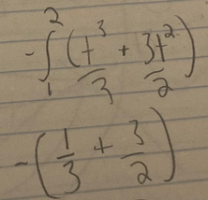 -∫₁² (t³/3 + 3t²/2)
-(1/3 + 3/2)